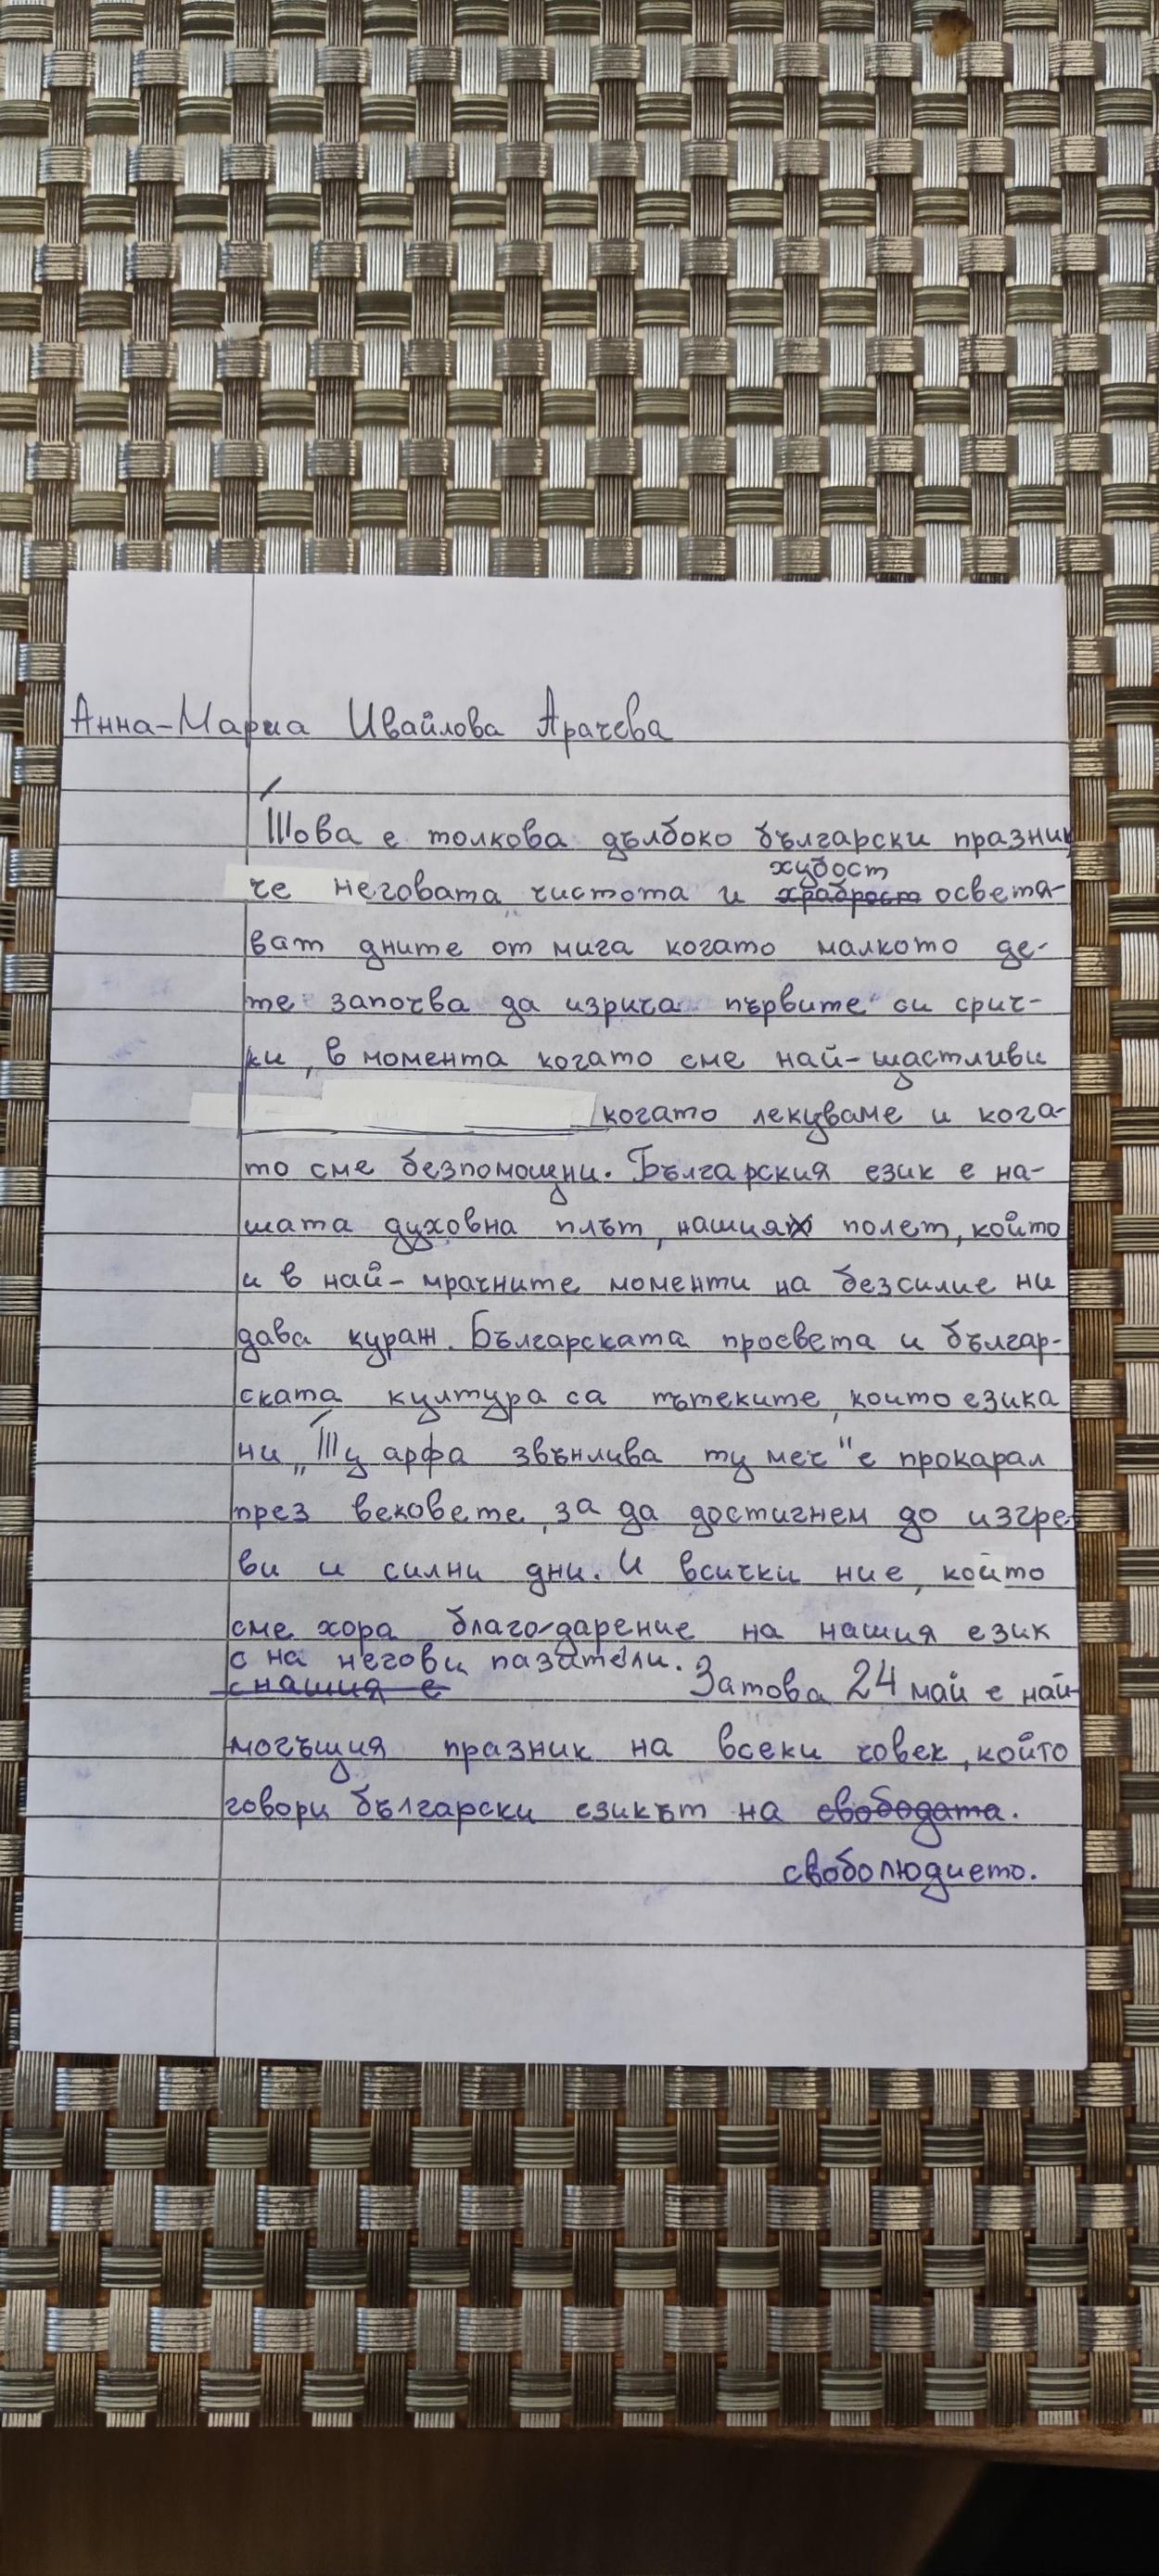 Анна-Мариа Ивайлова Арачева
Това е толкова дълбоко български празник
че неговата чистота и храброст хубост освета-
ват дните от мига когато малкото де-
те започва да изрича първите си срич-
ки, в момента когато сме най-щастливи
когато лекуваме и кога-
то сме безпомощни. Българския език е на-
шата духовна плът, нашият полет, който
и в най-мрачните моменти на безсилие ни
дава кураж. Българската просвета и българ-
ската култура са пътеките, които езика
ни „Ту арфа звънлива ту меч" е прокарал
през вековете, за да достигнем до изгре-
ви и силни дни. И всички ние, който
сме хора благодарение на нашия език
с на негови пазители.
с нашия е Затова 24 май е най-
могъщия празник на всеки човек, който
говори български езикът на свободата.
своболюдието.